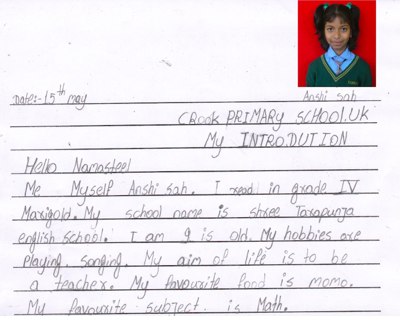 Date:- 15th may
Anshi sah
CRook PRIMARY SCHOOL.UK
My INTRO.DUTION
Hello Namastee!
Me Myself Anshi sah. I read in grade IV
Marigold. My school name is shree Tarapunja
english school. I am 9 is old. My hobbies are
Playing, songing. My aim of life is to be
a teacher. My favourite fond is momo.
My favourite subject is Math.